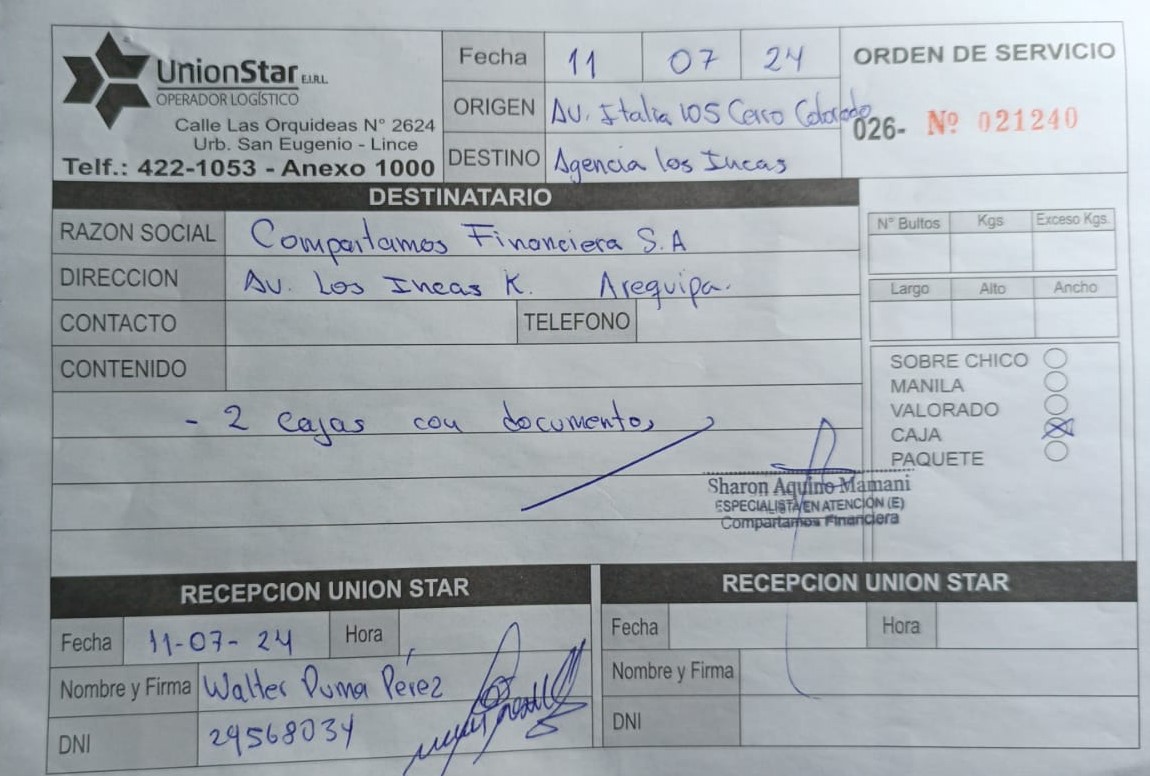 UnionStar E.I.R.L.
OPERADOR LOGÍSTICO
Calle Las Orquideas N° 2624
Urb. San Eugenio - Lince
Telf.: 422-1053 - Anexo 1000
Fecha 11 07 24
ORIGEN Av. Italia 105 Cerro Colorado
DESTINO Agencia los Incas
ORDEN DE SERVICIO
026- Nº 021240
DESTINATARIO
RAZON SOCIAL Compartamos Financiera S.A
DIRECCION Av. Los Incas K. Arequipa.
CONTACTO TELEFONO
CONTENIDO
- 2 cajas con documentos
N° Bultos Kgs Exceso Kgs.
Largo Alto Ancho
SOBRE CHICO
MANILA
VALORADO
CAJA
PAQUETE
Sharon Aquino Mamani
ESPECIALISTA EN ATENCIÓN (E)
Compartamos Financiera
RECEPCION UNION STAR
Fecha 11-07-24 Hora
Nombre y Firma Walter Puma Pérez
DNI 29568034
RECEPCION UNION STAR
Fecha Hora
Nombre y Firma
DNI